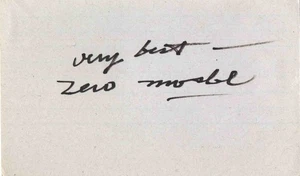 very best —
zero mostel